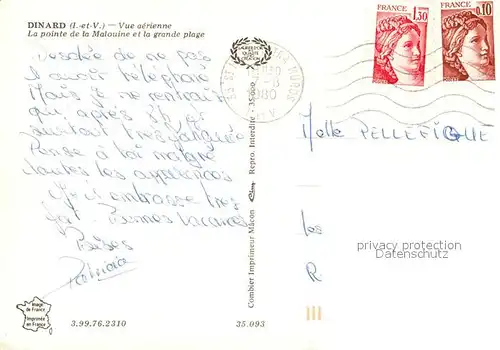 DINARD (I.-et-V.) — Vue aérienne
La pointe de la Malouine et la grande plage
Desolée de ne pas
t'avoir téléphoné
Mais je ne rentrait
qu'après 8h et
surtout très fatiguée
Pense à toi malgré
toutes les apparences
Je t'embrasse très
fort. Bonnes vacances
Bises
Patricia
Image
de France
Imprimée
en France
3.99.76.2310
35.093
Combier Imprimeur Mâcon
Repro. Interdite
LAURIER D'OR
QUALITE
CREATION
FRANCE
1,30
FRANCE
0,10
Melle PELLEFIGUE
les
R
privacy protection
Datenschutz